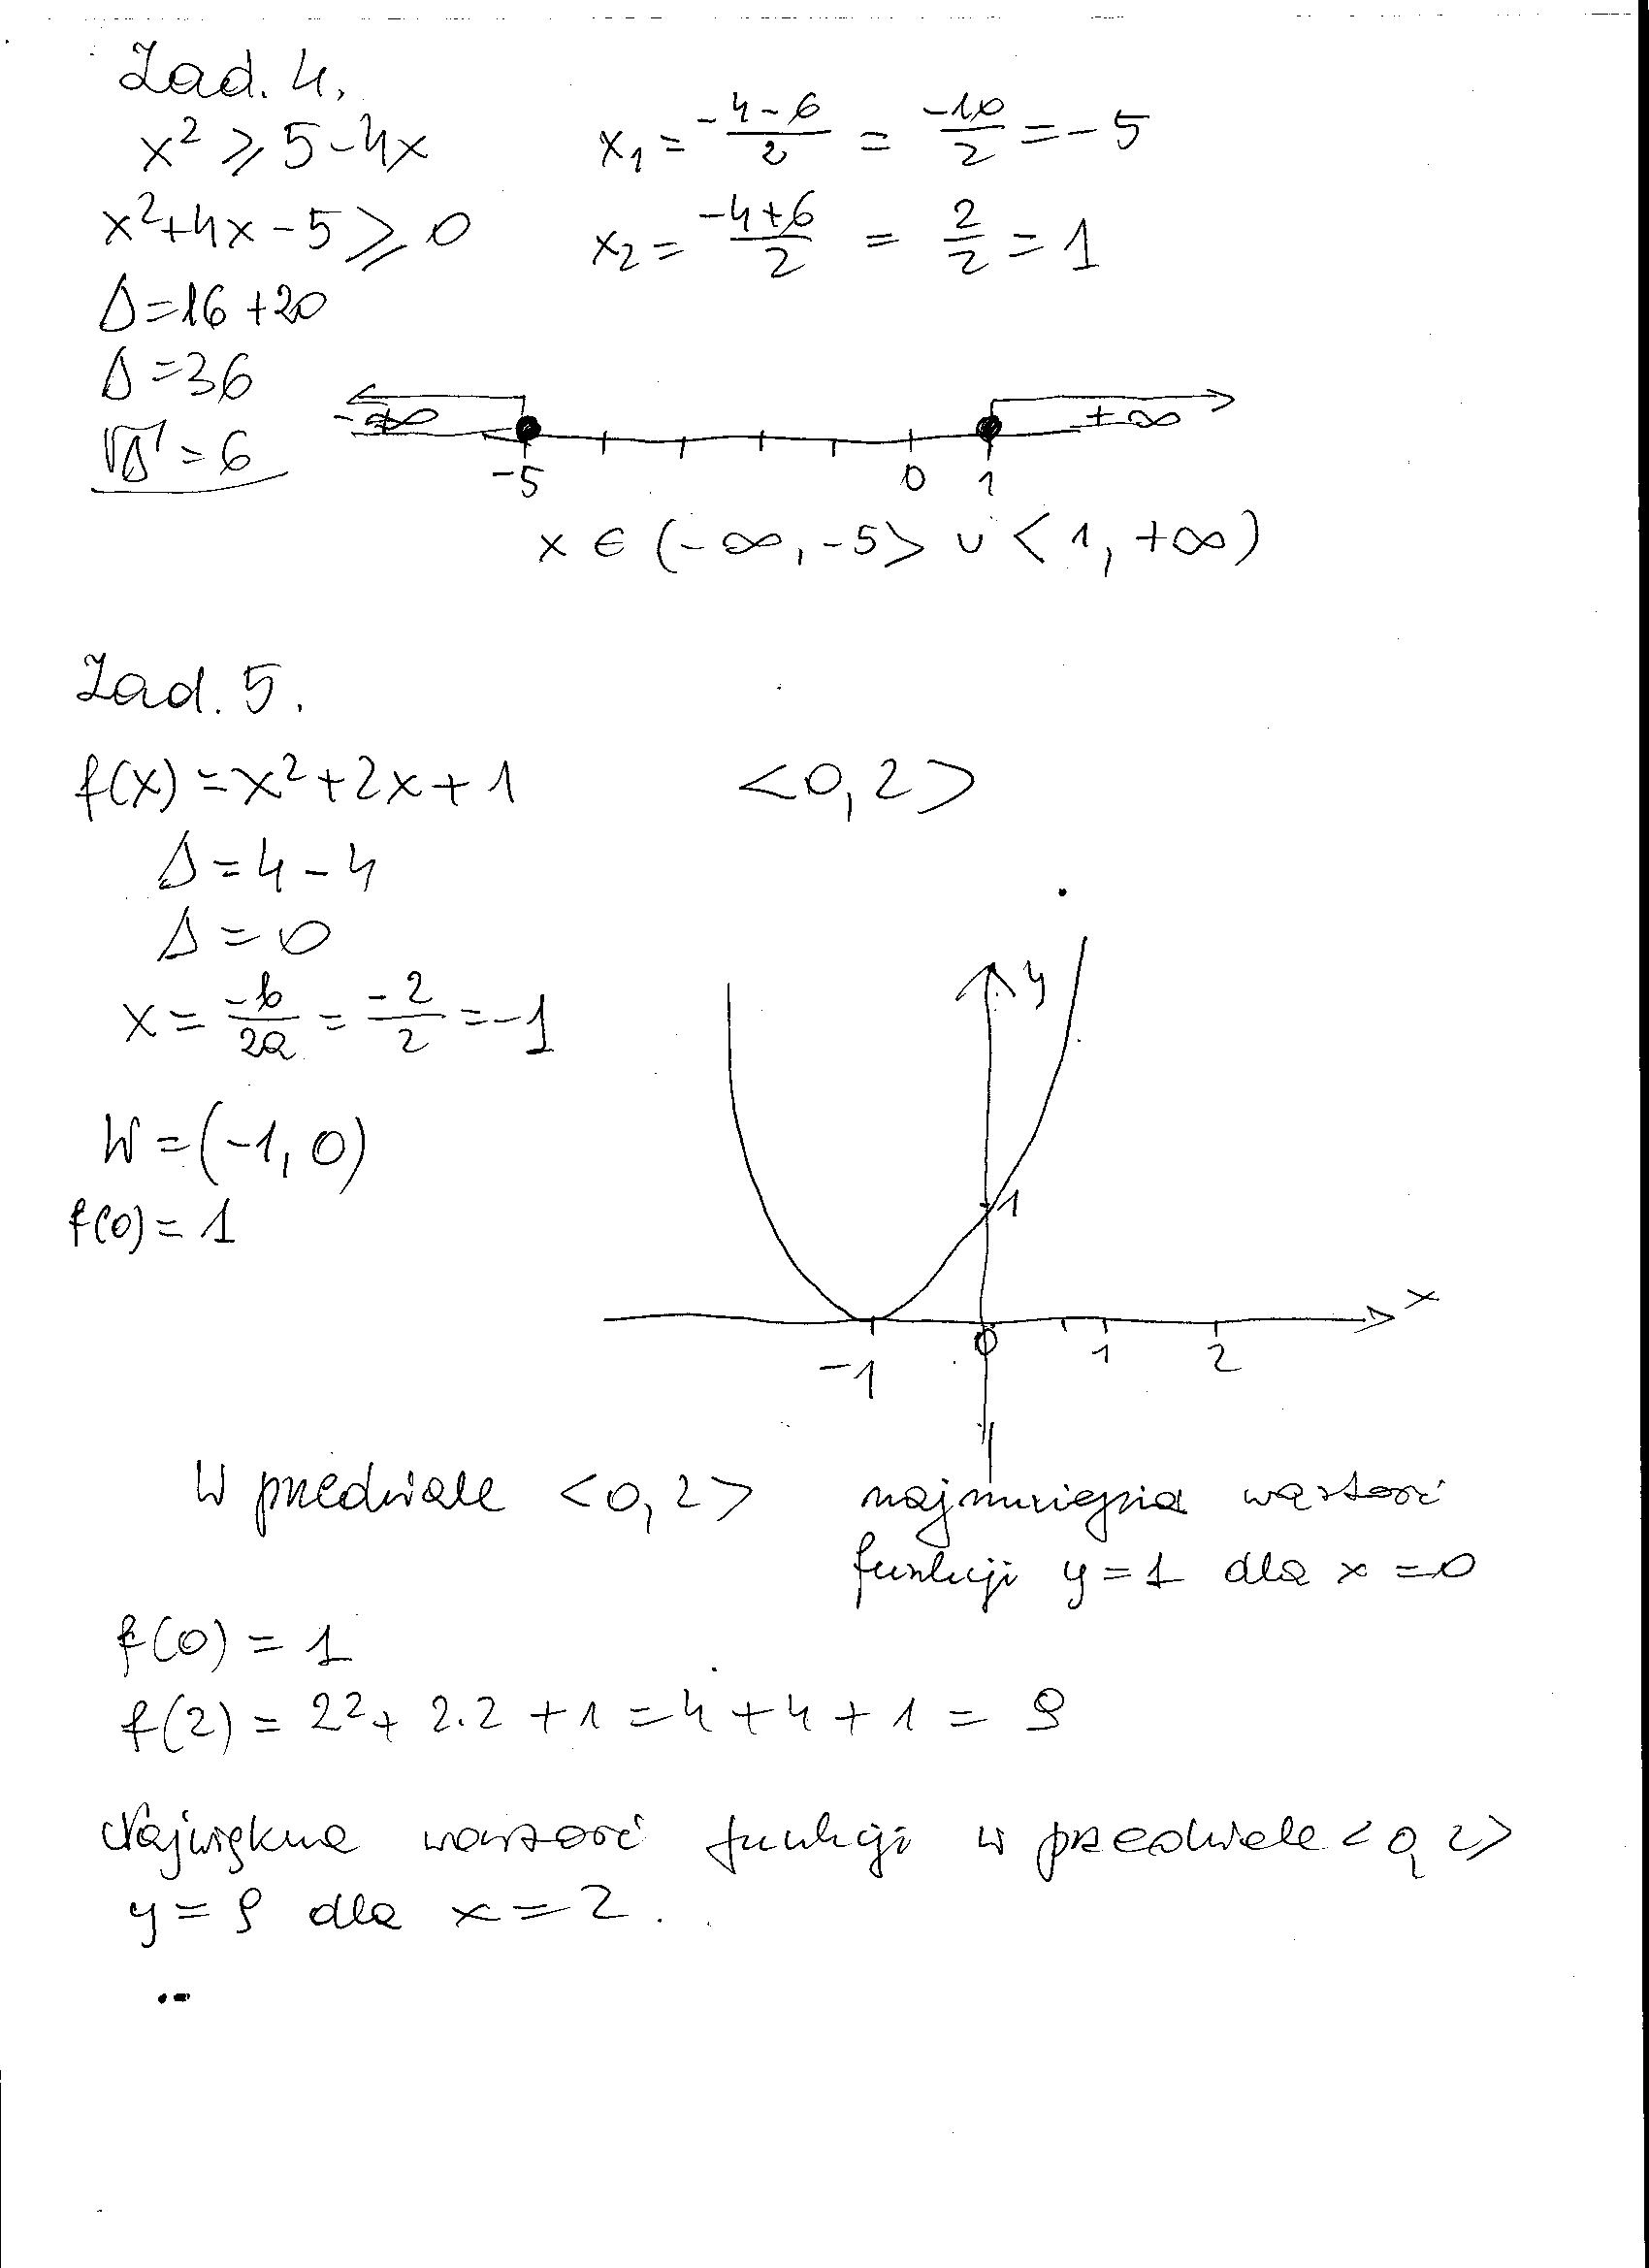 Zad. 4.
x² ⩾ 5-4x
x²+4x-5 ⩾ 0
Δ=16+20
Δ=36
√Δ = 6
x₁ = (-4-6)/2 = -10/2 = -5
x₂ = (-4+6)/2 = 2/2 = 1
-∞ +∞
-5 0 1
x ∈ (-∞, -5> ∪ <1, +∞)
Zad. 5.
f(x) = x²+2x+1 <0,2>
Δ = 4-4
Δ = 0
x = -b/2a = -2/2 = -1
W = (-1, 0)
f(0) = 1
y
1
x
-1 0 1 2
W przedziale <0,2> najmniejsza wartość
funkcji y=1 dla x=0
f(0) = 1
f(2) = 2² + 2·2 + 1 = 4 + 4 + 1 = 9
Największa wartość funkcji w przedziale <0,2>
y = 9 dla x = 2.